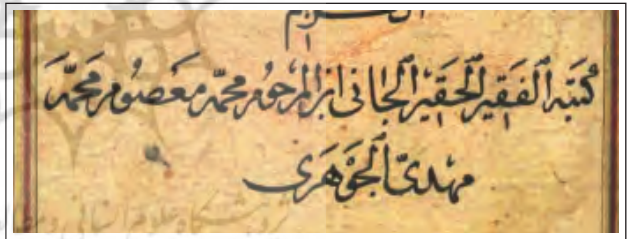 كتبه ٱلفقير ٱلحقير ٱلجاني ابن المرحوم محمّد معصوم محمّد
مهديّ ٱلجوهري